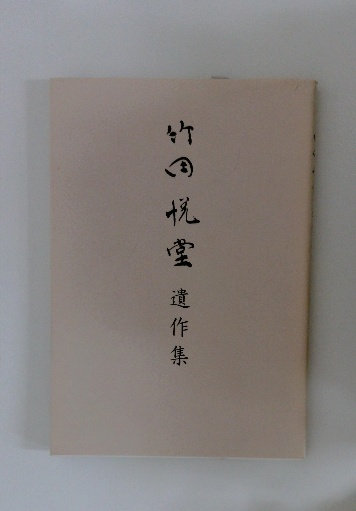 竹田悦堂 遺作集